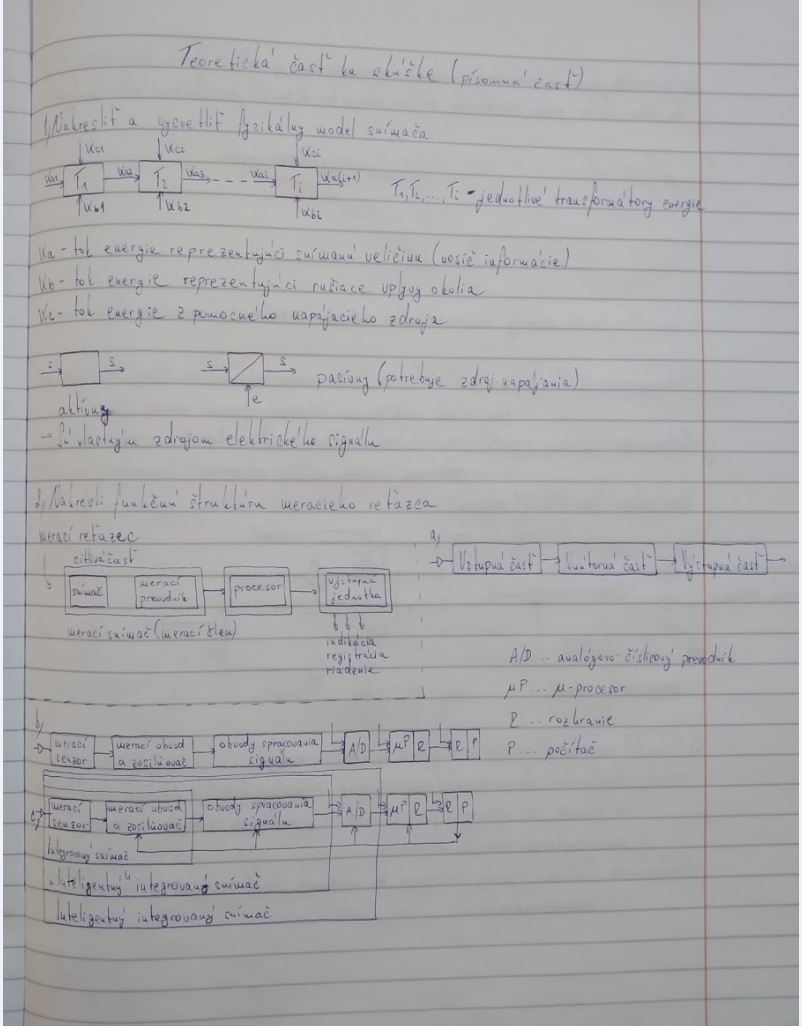 Teoretická časť ku skúške (písomná časť)
1, Nakresliť a vysvetliť fyzikálny model snímača.
αc1 αc2 αci
αa1 T1 αa2 T2 αa3 --- αai Ti αa(i+1)
αb1 αb2 αbi
T1, T2, ..., Ti - jednotlivé transformátory energie
αa - tok energie reprezentujúci snímanú veličinu (nosič informácie)
αb - tok energie reprezentujúci rušiace vplyvy okolia
αc - tok energie z pomocného napájacieho zdroja
s s s s pasívny (potrebuje zdroj napájania)
e
aktívny
→ Sú vlastným zdrojom elektrického signálu
2, Nakresli funkčnú štruktúru meracieho reťazca
merací reťazec
citlivá časť
snímač
merací
prevodník
procesor
výstupná
jednotka
merací snímač (merací člen)
indikácia
registrácia
riadenie
a,
Vstupná časť Vnútorná časť Výstupná časť
A/D ... analógovo-číslicový prevodník
μP ... μ-procesor
R ... rozhranie
P ... počítač
b,
merací
senzor
merací obvod
a zosilňovač
obvody spracovania
signálu
A/D μP R R P
c,
merací
senzor
merací obvod
a zosilňovač
obvody spracovania
signálu
A/D μP R R P
Integrovaný snímač
"Inteligentný" integrovaný snímač
Inteligentný integrovaný snímač